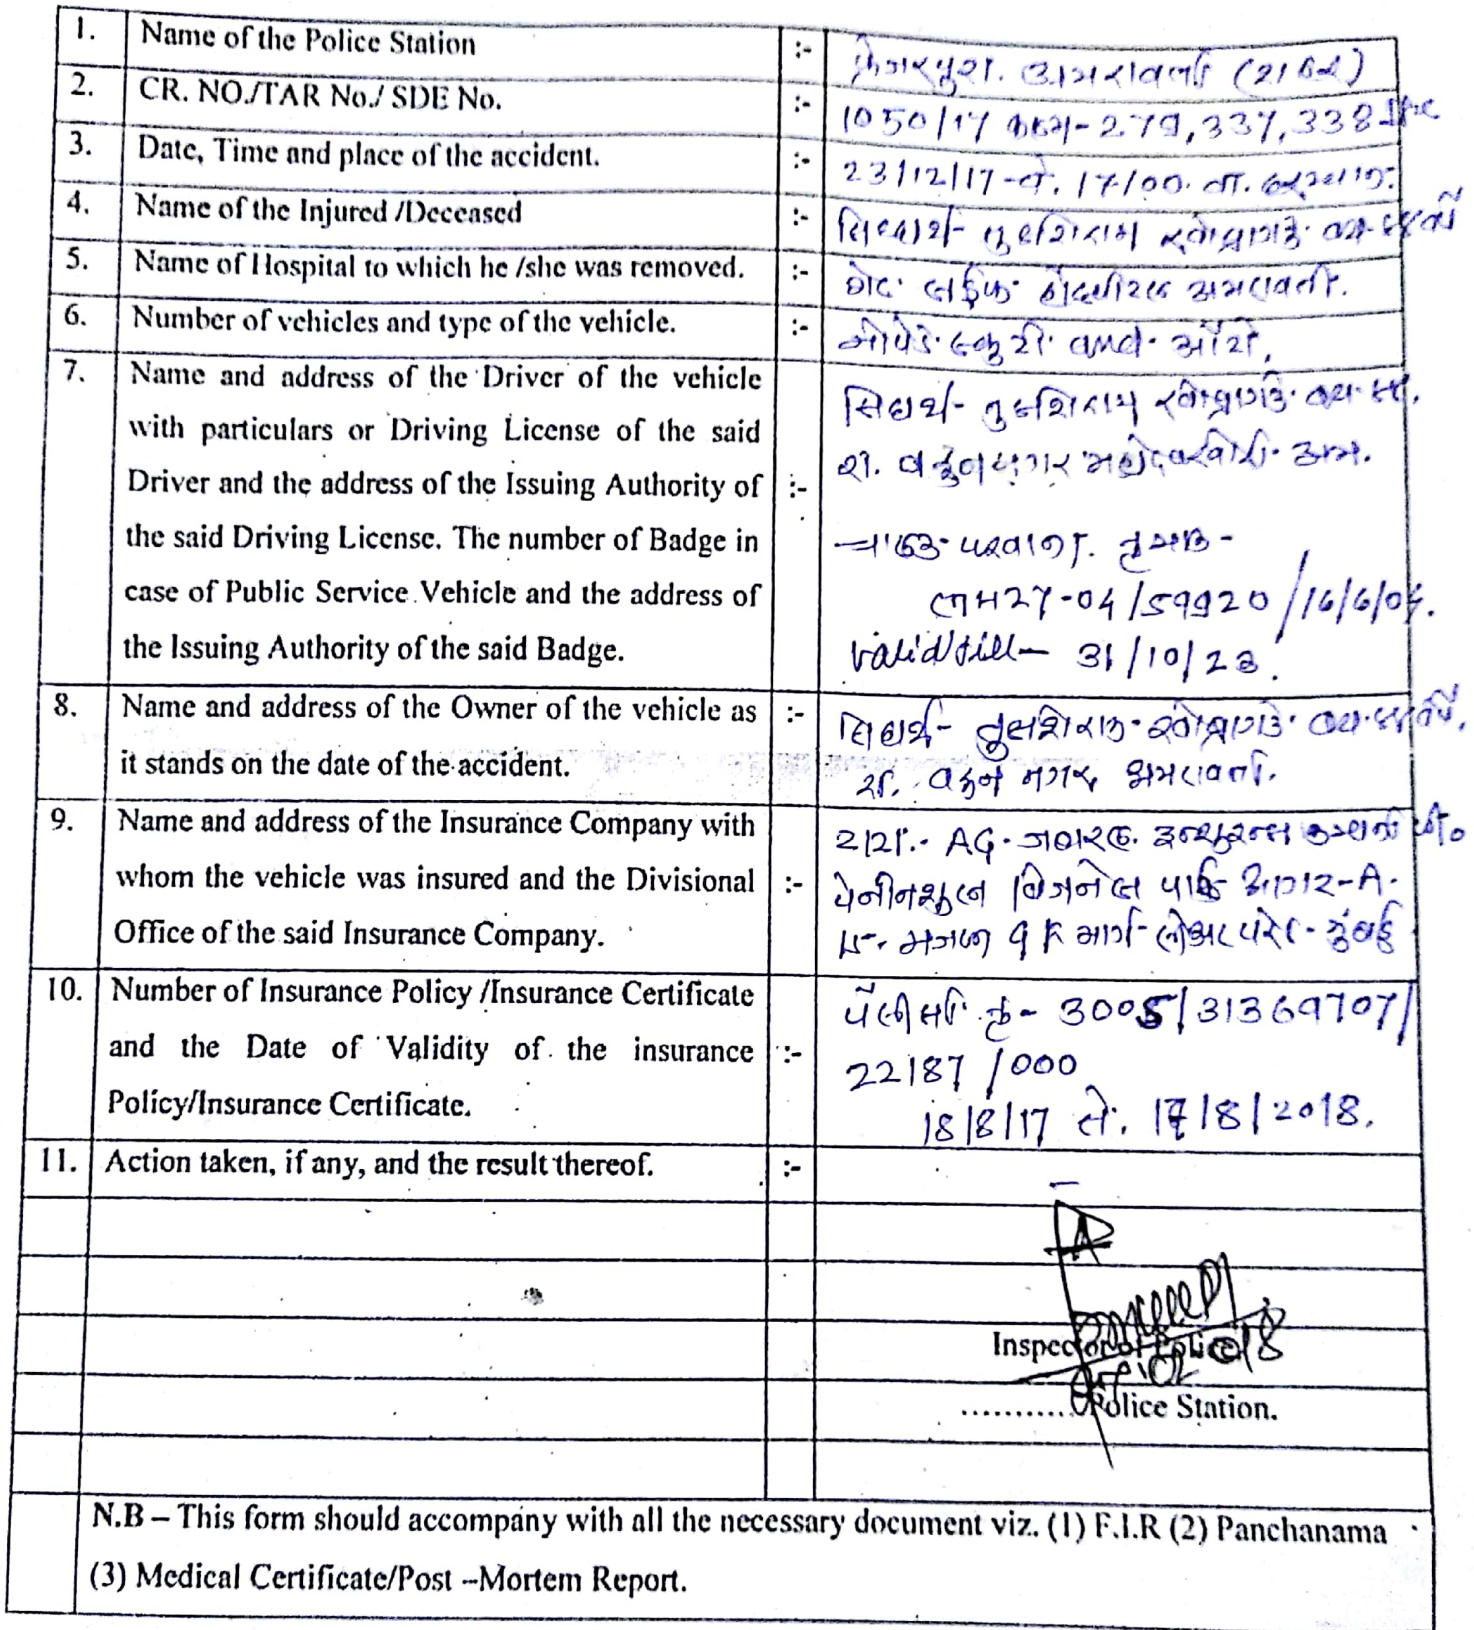 1. Name of the Police Station :- फ्रेजरपुरा. अमरावती (शहर)
2. CR. NO./TAR No./ SDE No. :- 1050/17 कलम-279,337,338
3. Date, Time and place of the accident. :- 23/12/17-चे. 17/00. वा.
4. Name of the Injured /Deceased :- तुळशिराम
5. Name of Hospital to which he /she was removed. :- लाईफ हॉस्पीटल अमरावती.
6. Number of vehicles and type of the vehicle. :- मोपेड स्कुटी and ऑटो,
7. Name and address of the Driver of the vehicle
with particulars or Driving License of the said
Driver and the address of the Issuing Authority of :-
the said Driving License. The number of Badge in
case of Public Service Vehicle and the address of
the Issuing Authority of the said Badge.
सिद्धार्थ- तुळशिराम
रा. अम.
परवाना. क्रमांक -
MH27-04/59920/16/6/04.
valid till- 31/10/23.
8. Name and address of the Owner of the vehicle as :-
it stands on the date of the accident.
सिद्धार्थ- तुळशिराम
रा. नगर अमरावती.
9. Name and address of the Insurance Company with
whom the vehicle was insured and the Divisional :-
Office of the said Insurance Company.
AG. जनरल. इन्शुरन्स कंपनी
पेनीनशुला पार्क टावर-A.
मार्ग- लोअर परेल- मुंबई
10. Number of Insurance Policy /Insurance Certificate
and the Date of Validity of the insurance :-
Policy/Insurance Certificate.
पॉलीसी क्र- 3005/31369707/
22187/000
18/8/17 ते. 17/8/2018.
11. Action taken, if any, and the result thereof. :-
–
Inspector of Police
..........Police Station.
N.B – This form should accompany with all the necessary document viz. (1) F.I.R (2) Panchanama
(3) Medical Certificate/Post –Mortem Report.